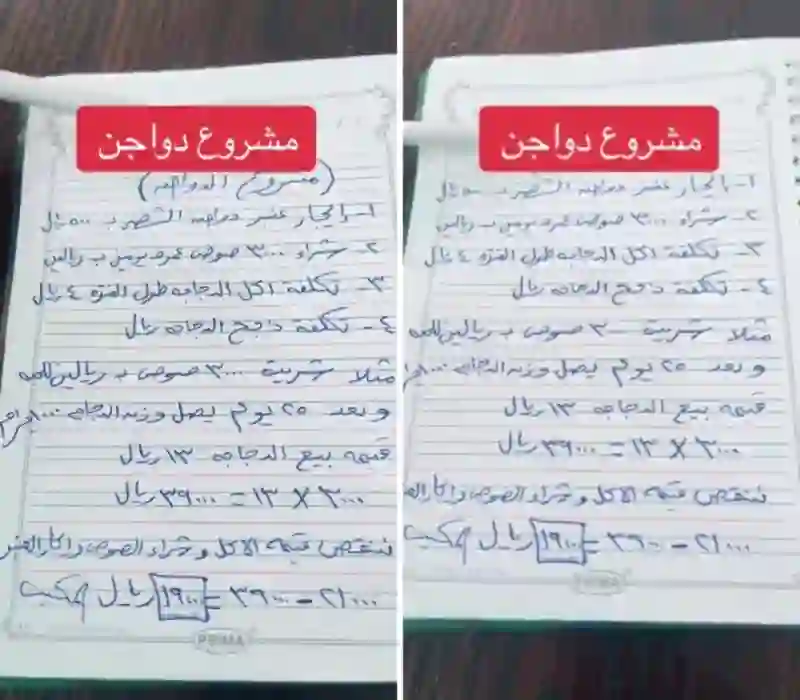 مشروع دواجن
(مشروع الدواجن)
١- إيجار عنبر دواجن الشهر ب ٥٠٠ ريال
٢- شراء ٣٠٠٠ صوص عمره يومين ب ريالين
٣- تكلفة اكل الدجاجه طول الفتره ٤ ريال
٤- تكلفة ذبح الدجاجه ريال
مثلا شريت ٣٠٠٠ صوص ب ريالين للحبه
وبعد ٢٥ يوم يصل وزن الدجاجه ١٠٠٠ جرام
قيمه بيع الدجاجه ١٣ ريال
٣٠٠٠ X ١٣ = ٣٩٠٠٠ ريال
ننقص قيمه الاكل وشراء الصوص وايجار العنبر
٢١٠٠٠ - ٣٩٠٠٠ = ١٩٠٠٠ ريال مكسب
PRIMA
مشروع دواجن
١- إيجار عنبر دواجن الشهر ب ٥٠٠ ريال
٢- شراء ٣٠٠٠ صوص عمره يومين ب ريالين
٣- تكلفة اكل الدجاجه طول الفتره ٤ ريال
٤- تكلفة ذبح الدجاجه ريال
مثلا شريت ٣٠٠٠ صوص ب ريالين للحبه
وبعد ٢٥ يوم يصل وزن الدجاجه ١٠٠٠
قيمه بيع الدجاجه ١٣ ريال
٣٠٠٠ X ١٣ = ٣٩٠٠٠ ريال
ننقص قيمه الاكل وشراء الصوص وايجار
٢١٠٠٠ - ٣٩٠٠٠ = ١٩٠٠٠ ريال مكسب
PRIMA